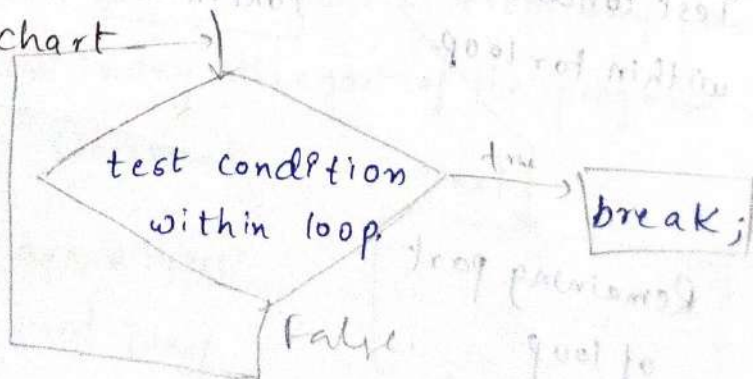 chart
test condition
within loop.
true
break;
False